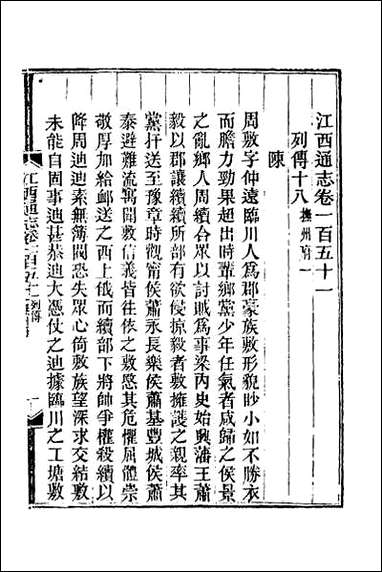 江西通志卷一百五十一
列傳十八 撫州府一
陳
周敷字仲遠臨川人爲郡豪族敷形貌眇小如不勝衣
而膽力勁果超出時輩鄉黨少年任氣者咸歸之侯景
之亂鄉人周續合眾以討賊爲事梁內史始興藩王蕭
毅以郡讓續續所部有欲侵掠毅者敷擁護之親率其
黨扞送至豫章時觀甯侯蕭永長樂侯蕭基豐城侯蕭
泰避難流寓聞敷信義皆往依之敷愍其危懼屈體崇
敬厚加給卹送之西上俄而續部下將帥爭權殺續以
降周迪迪素無簿閥恐失眾心倚敷族望深求交結敷
未能自固事迪甚恭迪大憑仗之迪據臨川之工塘敷
江西通志卷一百五十一 列傳